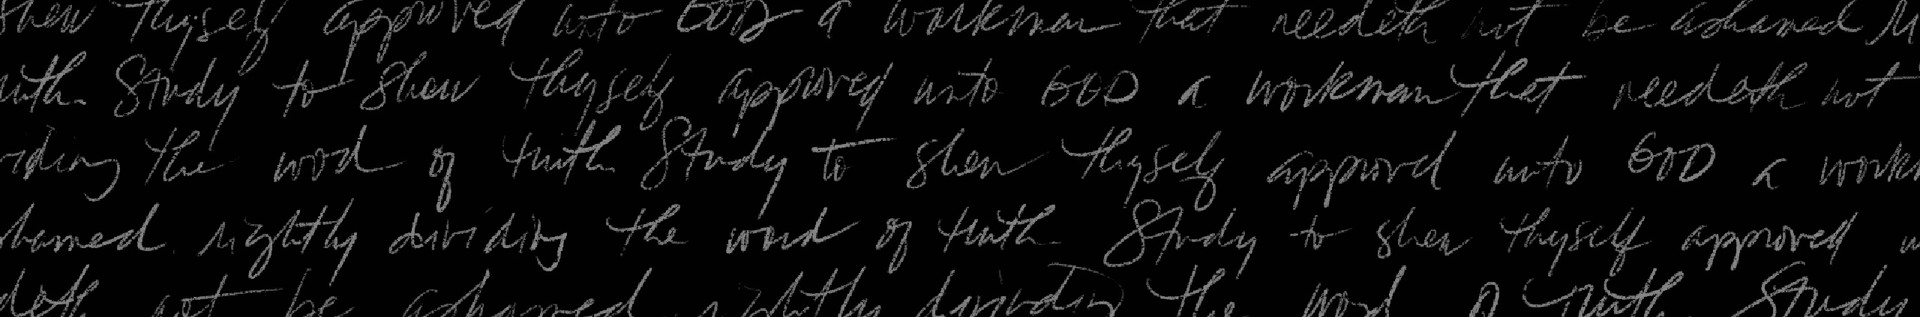 shew thyself approved unto GOD a workman that needeth not be ashamed
truth. Study to shew thyself approved unto GOD a workman that needeth not
viding the word of truth Study to shew thyself approved unto GOD a workm
shamed rightly dividing the word of truth. Study to shew thyself approved
deth not be ashamed rightly dividing the word of truth. Study